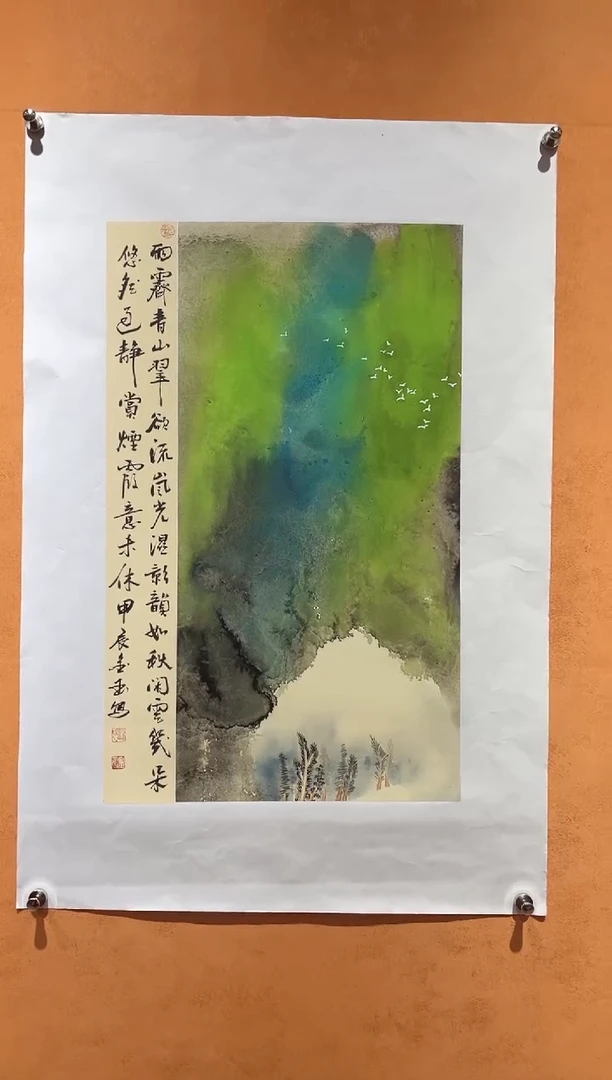 雨霽青山翠欲流嵐光湿影韻如秋闲雲幾朵
悠然過靜賞煙霞意未休甲辰